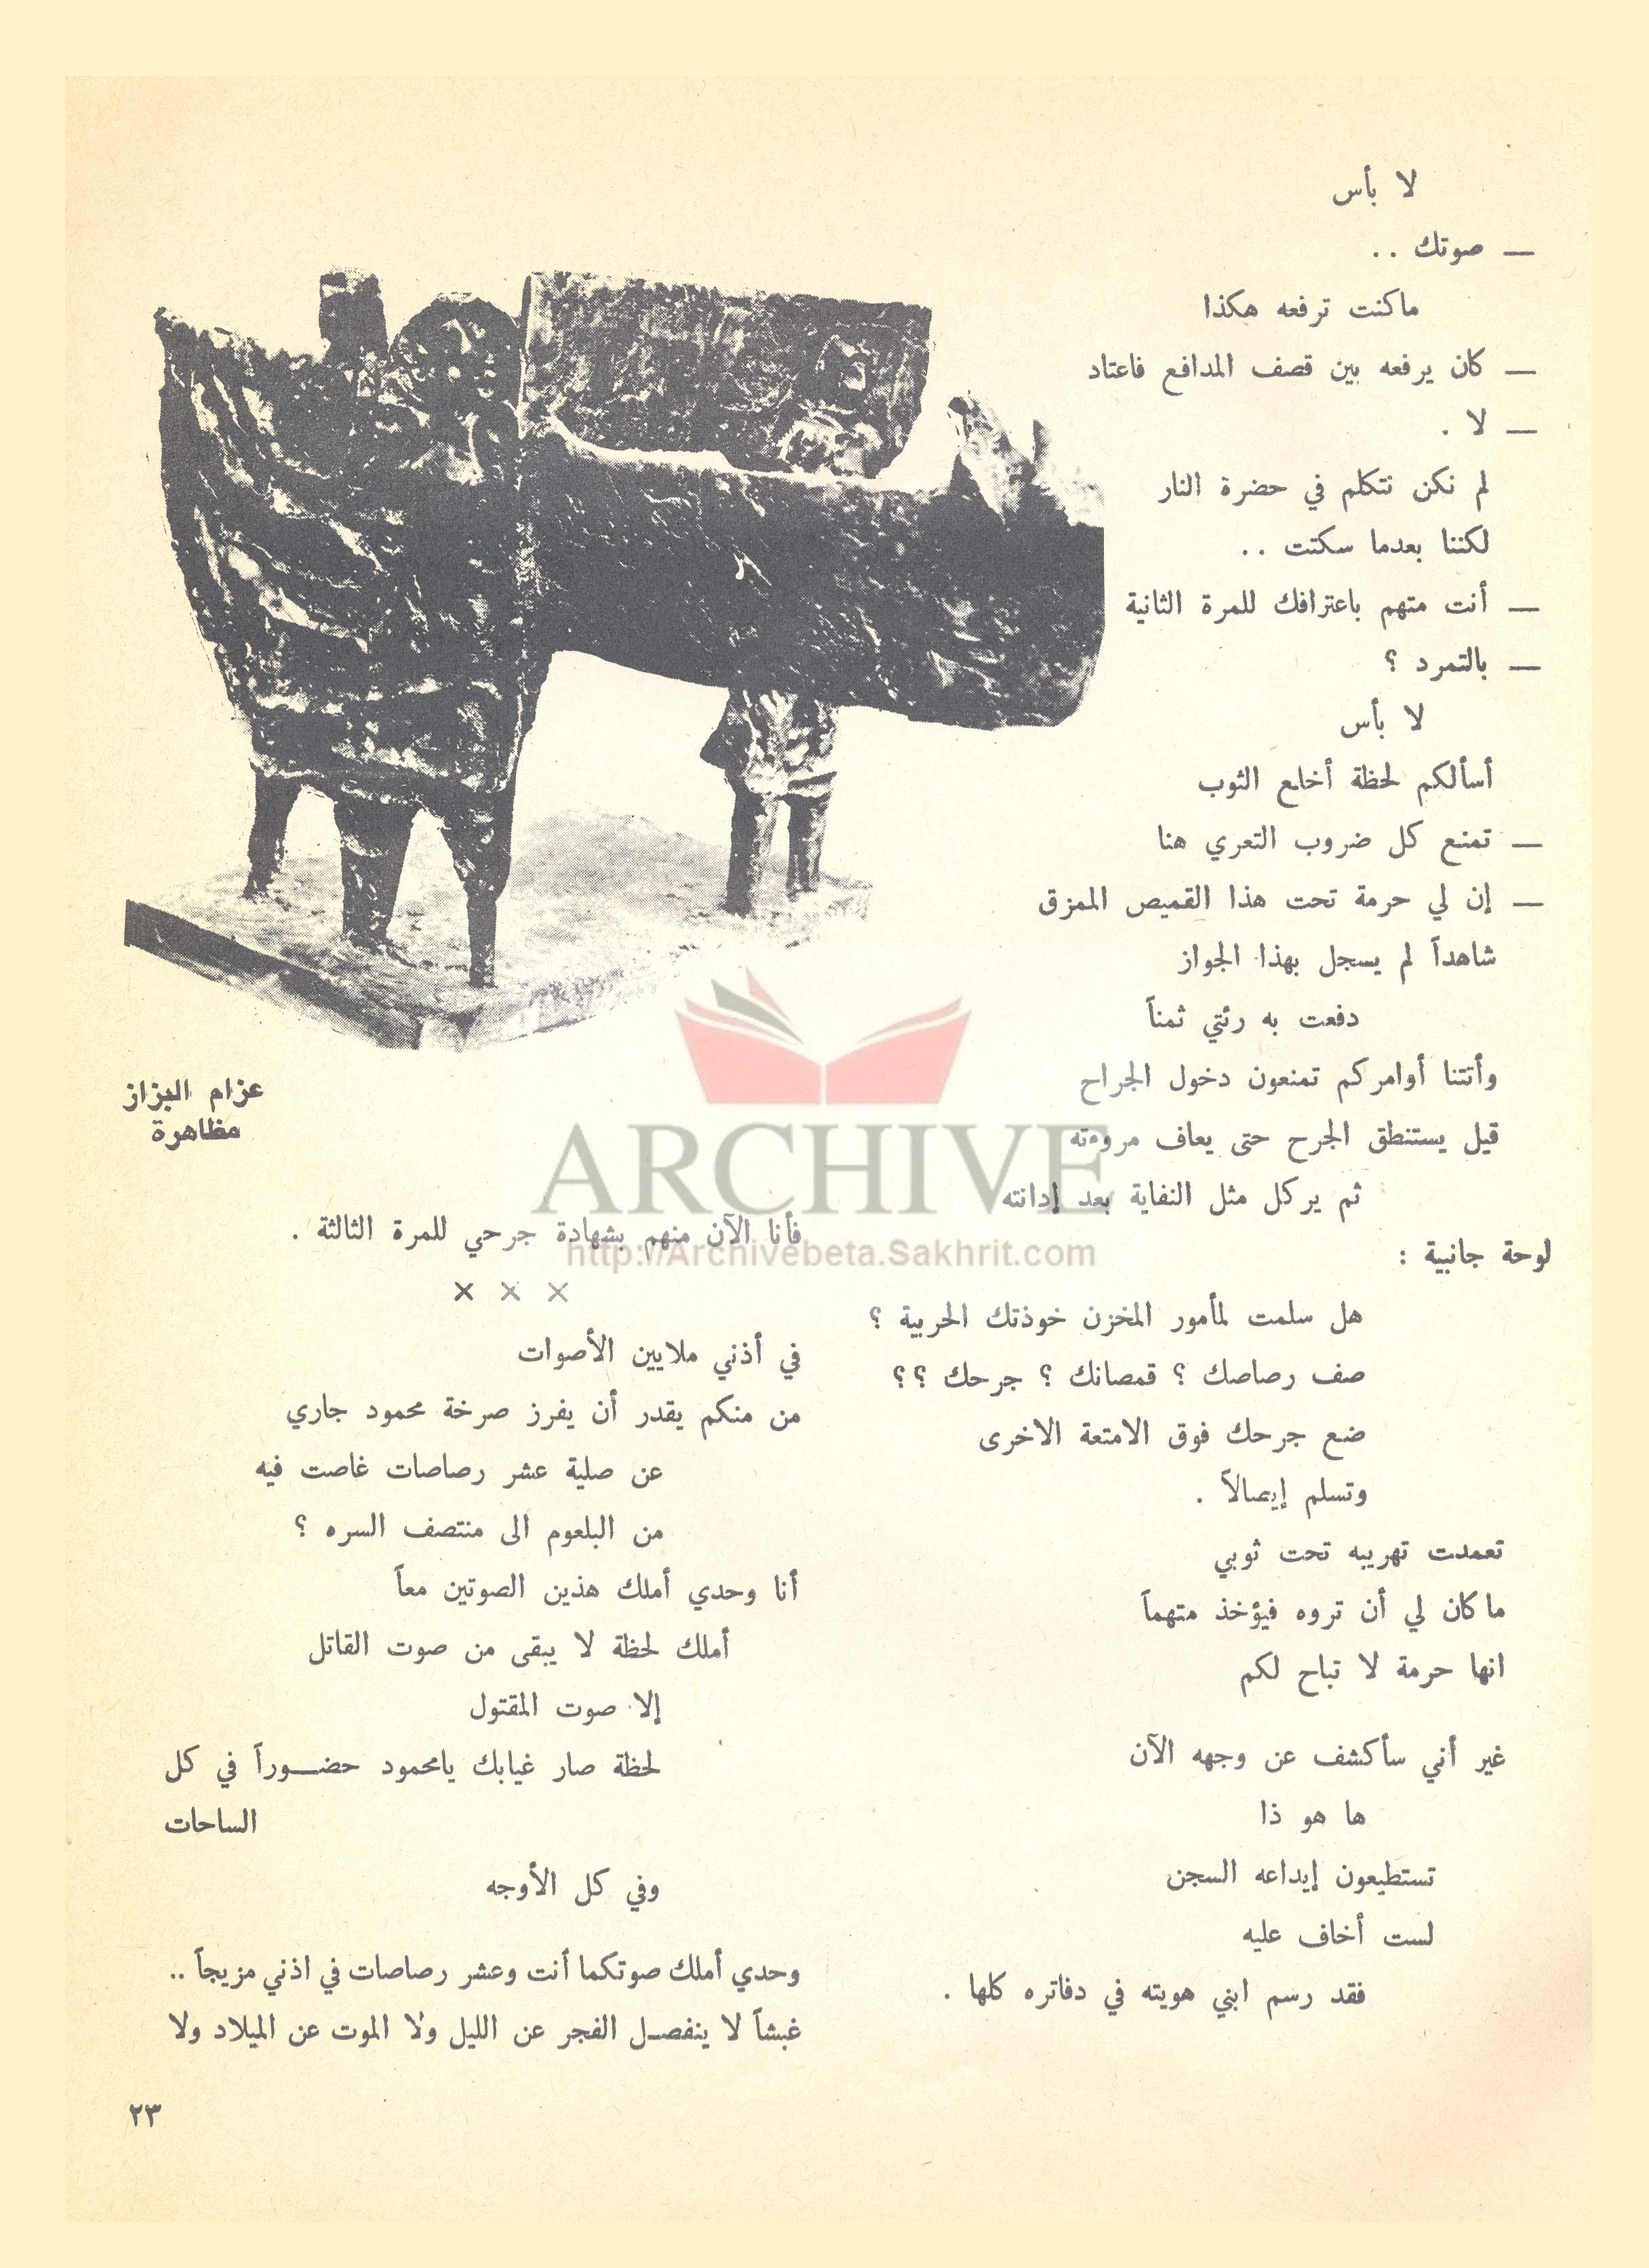 لا بأس
— صوتك ..
ماكنت ترفعه هكذا
— كان يرفعه بين قصف المدافع فاعتاد
— لا .
لم نكن نتكلم في حضرة النار
لكننا بعدما سكتت ..
— أنت متهم باعترافك للمرة الثانية
— بالتمرد ؟
لا بأس
أسألكم لحظة أخلع الثوب
— تمنع كل ضروب التعري هنا
— إن لي حرمة تحت هذا القميص الممزق
شاهداً لم يسجل بهذا الجواز
دفعت به رئتي ثمناً
وأتتنا أوامركم تمنعون دخول الجراح
قيل يستنطق الجرح حتى يعاف مروءته
ثم يركل مثل النفاية بعد إدانته
لوحة جانبية :
هل سلمت لمأمور المخزن خوذتك الحربية ؟
صف رصاصك ؟ قمصانك ؟ جرحك ؟؟
ضع جرحك فوق الامتعة الاخرى
وتسلم إيصالاً .
تعمدت تهريبه تحت ثوبي
ماكان لي أن تروه فيؤخذ متهماً
انها حرمة لا تباح لكم
غير أني سأكشف عن وجهه الآن
ها هو ذا
تستطيعون إيداعه السجن
لست أخاف عليه
فقد رسم ابني هويته في دفاتره كلها .
عزام البزاز
مظاهرة
فأنا الآن منهم بشهادة جرحي للمرة الثالثة .
× × ×
في أذني ملايين الأصوات
من منكم يقدر أن يفرز صرخة محمود جاري
عن صلية عشر رصاصات غاصت فيه
من البلعوم الى منتصف السره ؟
أنا وحدي أملك هذين الصوتين معاً
أملك لحظة لا يبقى من صوت القاتل
إلا صوت المقتول
لحظة صار غيابك يامحمود حضـــوراً في كل
الساحات
وفي كل الأوجه
وحدي أملك صوتكما أنت وعشر رصاصات في اذني مزيجاً ..
غبشاً لا ينفصـل الفجر عن الليل ولا الموت عن الميلاد ولا
٢٣
ARCHIVE
http://Archivebeta.Sakhrit.com